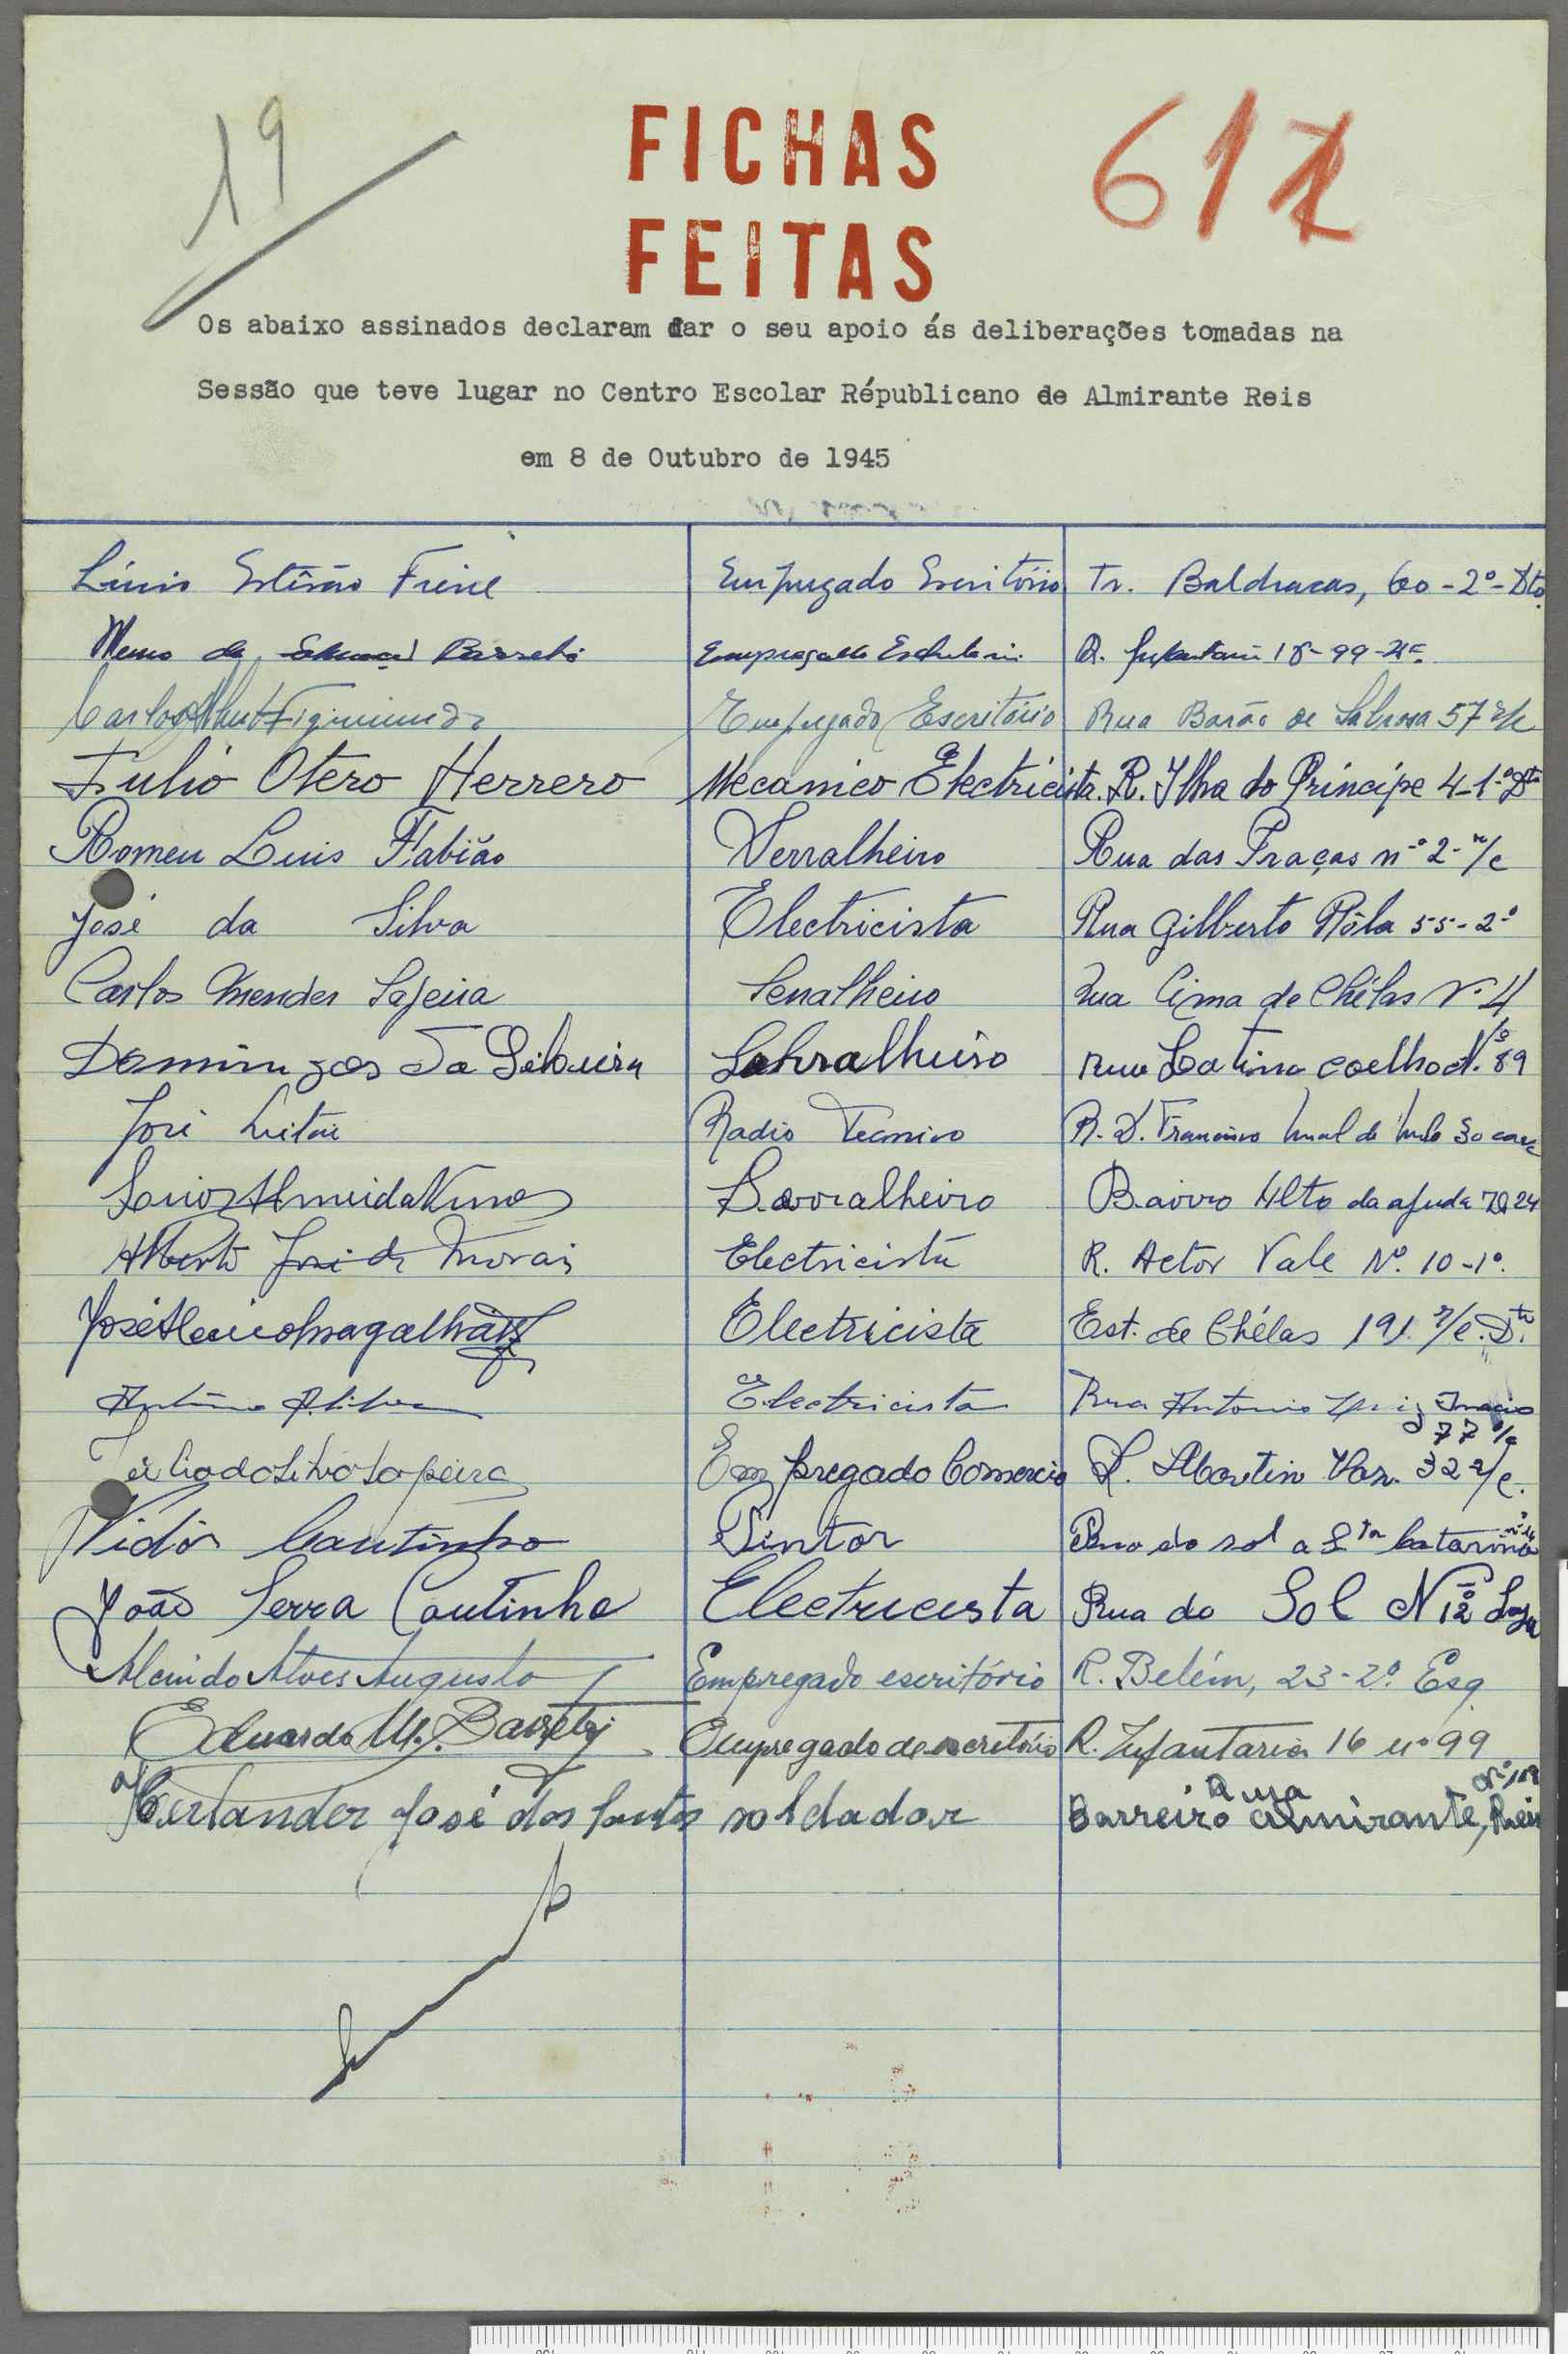 19
FICHAS
FEITAS
61
Os abaixo assinados declaram dar o seu apoio ás deliberações tomadas na
Sessão que teve lugar no Centro Escolar Républicano de Almirante Reis
em 8 de Outubro de 1945
Freire Empregado Escritório Tr. Baldracas, 60-2º-Dto.
de Barreto Empregado 99
Carlos Empregado Escritório Rua Barão de Sabrosa 57 r/c
Julio Otero Herrero Mecanico Electricista. R. Ilha do Principe 4-1º Dto
Romeu Luis Fabião Serralheiro Rua das Praças nº 2-r/c
José da Silva Electricista Rua Gilberto Rôla 55-2º
Carlos Mendes Serralheiro Rua Cima de Chélas Nº 4
Domingos Da Silveira Rua Latino Coelho Nº 89
José Leitão Radio Tecnico R. D. Francisco de 30 cave
Almeida Bairro Alto da Ajuda 24
Alberto José de Morais Electricista R. Actor Vale Nº. 10-1º.
José Magalhães Electricista Est. de Chélas 191. r/c. Dto.
António Electricista Rua Antonio
77 r/c
Empregado Comercio R. Martin Vaz. 32 r/c.
Coutinho Pintor do sol a Sta Catarina
João Serra Coutinho Electricista Rua do Sol Nº 12
Alcindo Alves Augusto Empregado escritório R. Belém, 23-2º. Esq.
Eduardo M. Barreto Empregado de escritório R. Infantaria 16 nº 99
Rua
José dos Santos soldador Barreiro almirante, Reis